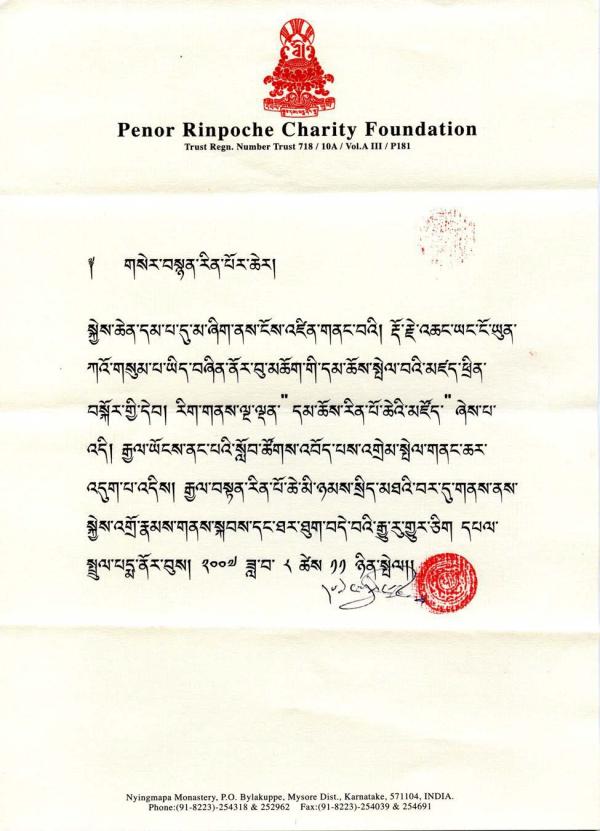 Penor Rinpoche Charity Foundation
Trust Regn. Number Trust 718 / 10A / Vol.A III / P181
༈ གསེར་བསྙན་རིན་པོར་ཆེར།
སྐྱེས་ཆེན་དམ་པ་དུ་མ་ཞིག་ནས་ངོས་འཛིན་གནང་བའི། རྡོ་རྗེ་འཆང་ཡང་ངོ་ཡུན་
ཀའོ་གསུམ་པ་ཡིད་བཞིན་ནོར་བུ་མཆོག་གི་དམ་ཆོས་སྤེལ་བའི་མཛད་ཕྲིན་
བསྐོར་གྱི་དེབ། རིག་གནས་ལྔ་ལྡན་" དམ་ཆོས་རིན་པོ་ཆེའི་མཛོད་" ཞེས་པ་
འདི། རྒྱལ་ཡོངས་ནང་པའི་སློབ་ཚོགས་འབོད་པས་འགྲེམ་སྤེལ་གནང་ཆར་
འདུག་པ་འདིས། རྒྱལ་བསྟན་རིན་པོ་ཆེ་མི་ཉམས་སྲིད་མཐའི་བར་དུ་གནས་ནས་
སྐྱེས་འགྲོ་རྣམས་གནས་སྐབས་དང་ཐར་ཐུག་བདེ་བའི་རྒྱུ་རུ་གྱུར་ཅིག དཔལ་
སྤྲུལ་པདྨ་ནོར་བུས། ༢༠༠༧ ཟླ་བ་ ༨ ཚེས་ ༡༡ ཉིན་སྤེལ།།
Nyingmapa Monastery, P.O. Bylakuppe, Mysore Dist., Karnatake, 571104, INDIA.
Phone:(91-8223)-254318 & 252962 Fax:(91-8223)-254039 & 254691